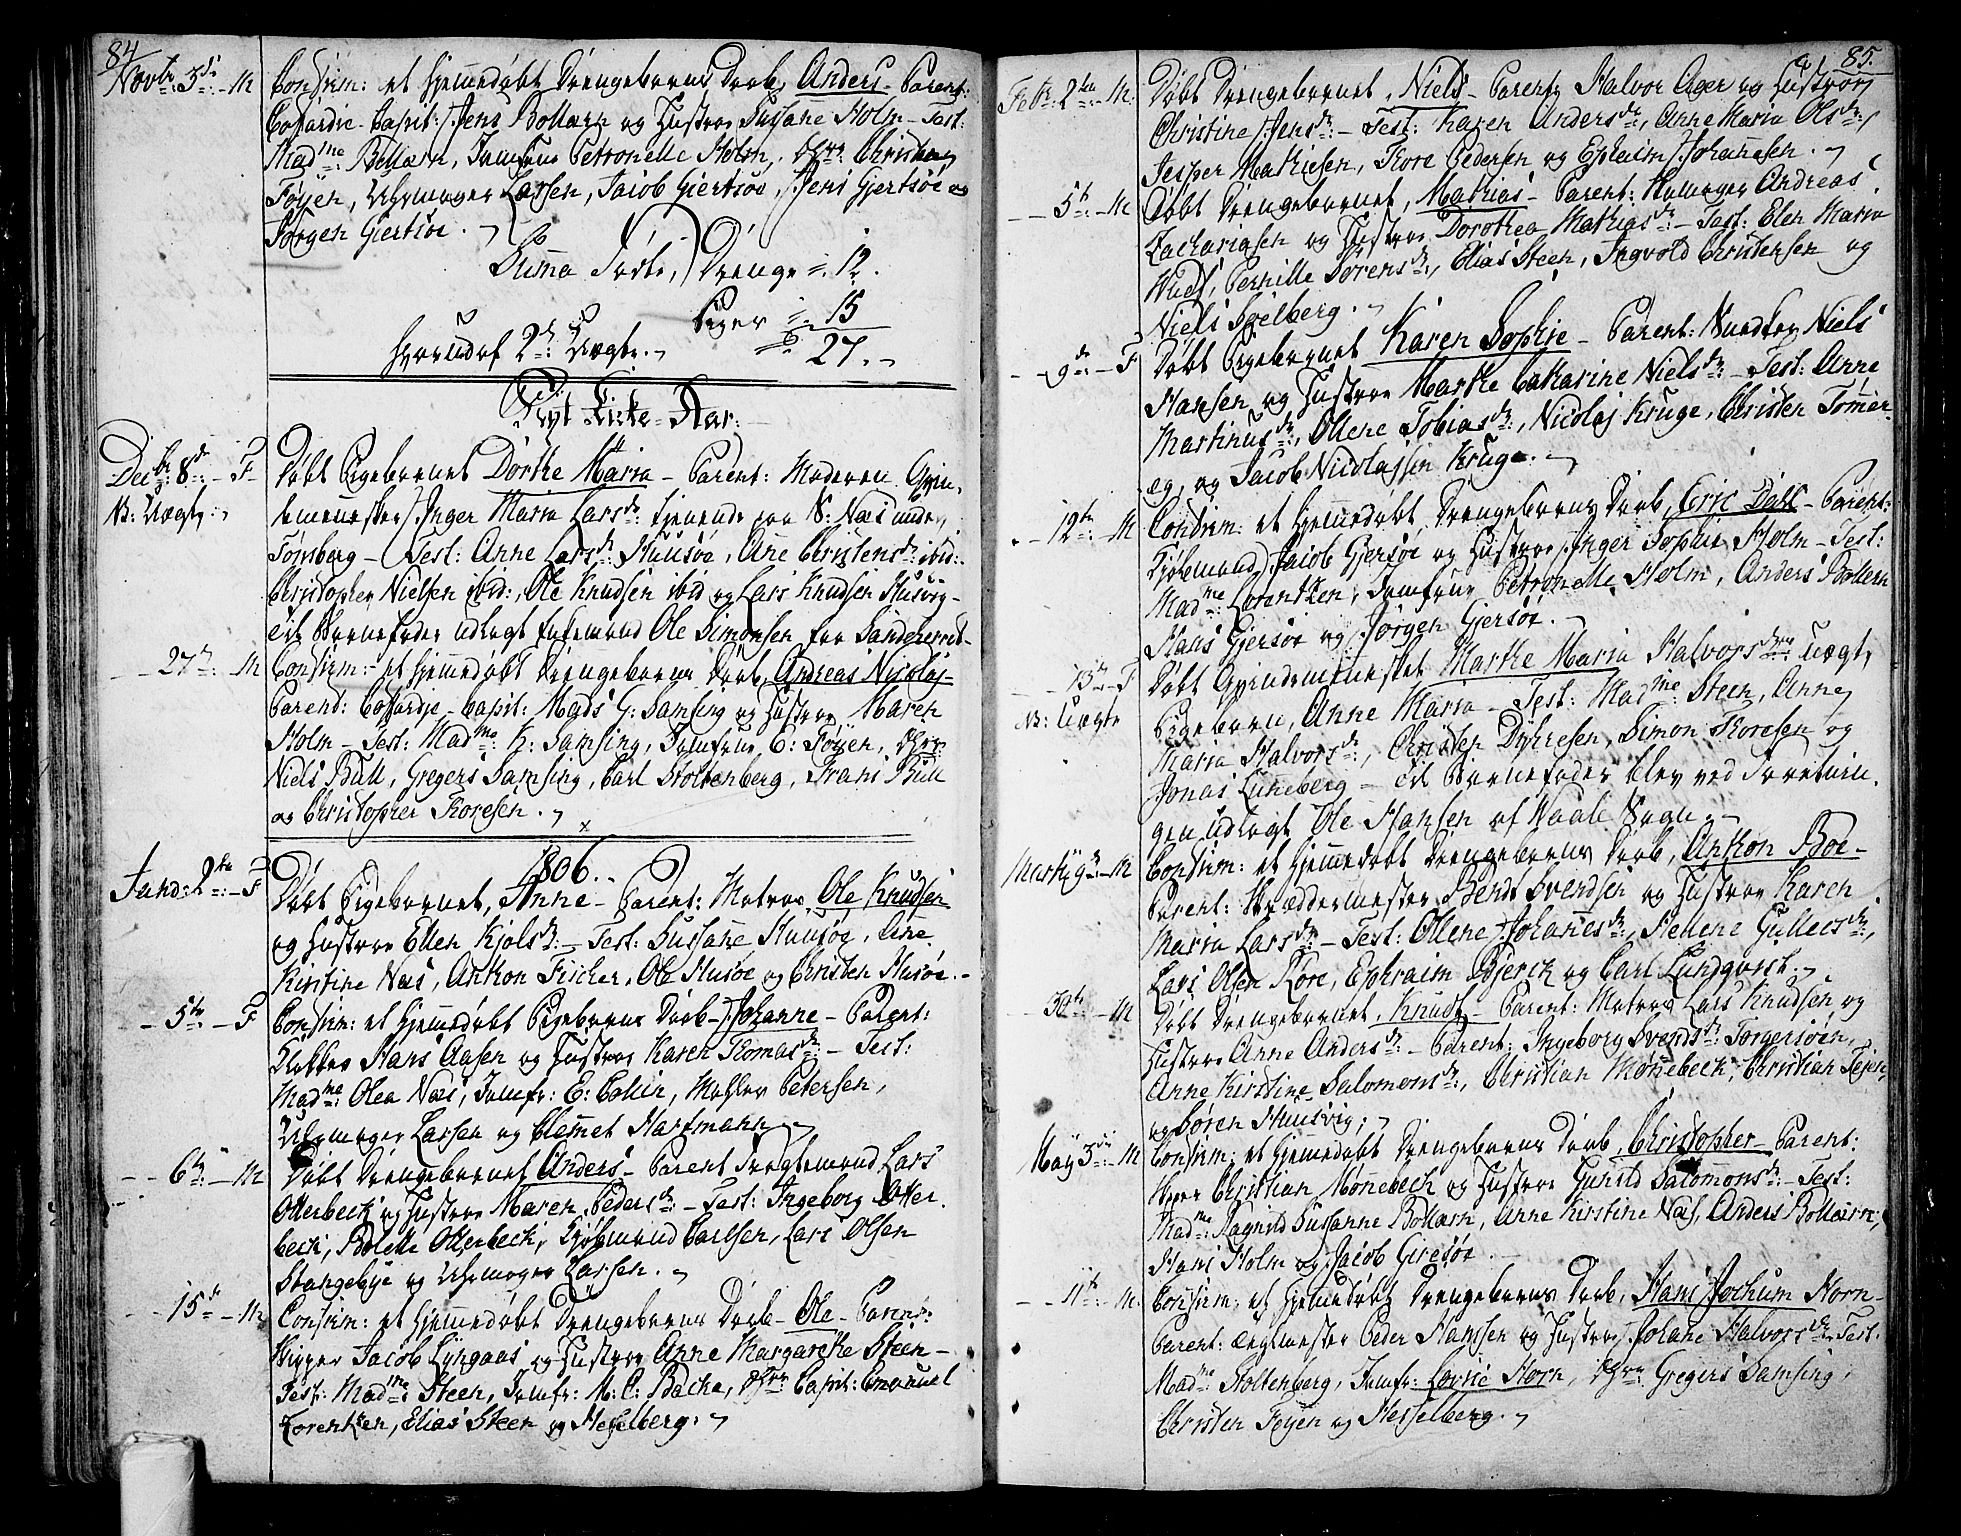 84
Novbr: 3di - M Confirm: et hjemmedøbt Drengebarns Daab, Anders - Parent:
Coffardie-Capit: Jens Bollærn og Hustrue Susane Holm - Test:
Madme: Bollærn, Jomfrue Petronelle Holm, Hrr: Christen
Føyen, Uhrmager Larsen, Jacob Giertsøe, Jens Gjertsøe og
Jørgen Giertsøe.
Suma Fødte, Drenge = 12.
Piger = 15
hvoraf 2de: Uægte. = 27.
Nyt Kirke-Aar:
Decbr: 8de - F Døbt Pigebarnet Dorthe Maria - Parent: Moderen Qvin-
N: Uægte; demennesket Inger Maria Larsdr: tienende paa N: Næs under
Tønsberg - Test: Anne Larsdr: Huusøe, Ane Christensdr: ibid:
Christopher Nielsen ibid:, Ole Knudsen ibid og Lars Knudsen Husvig -
Til Barnefader udlagt Ole Simonsen fra
27de - M Confirm: et hjemmedøbt Drengebarns Daab, Andreas Nicolaj -
Parent: Coffardje-Capit: Mads G: Samsing og Hustrue Maren
Holm - Test: Madme: K: Samsing, Jomfrue E: Føyen, Hrr:
Niels Bull, Gregers Samsing, Carl Stoltenberg, Frans Bull
og Christopher Thoresen.
1806.
Janv: 2den - F Døbt Pigebarnet, Anne - Parent: Matros Ole Knudsen
og Hustrue Ellen Kjølsdr: - Test: Sussane Huusøe, Ane
Kirstine Næs, Anthon Fischer, Ole Husøe og Christen Husøe.
5te - F Confirm: et hjemmedøbt Pigebarns Daab - Johanne - Parent:
Klokker Hans Aasen og Hustrue Karen Thomasdr: - Test:
Madme Olea Næs, Jomfr: E: Collin, Mægler Petersen,
Uhrmager Larsen og Clemet Hartmann
6te: - M Døbt Drengebarnet Anders - Parent Lars
Otterbeck og Hustrue Maren Pedersdr: - Test: Ingeborg Otter-
beck, Bolette Otterbeck, Kjøbmand Carlsen, Lars Olsen
Stangebye og Uhrmager Larsen.
15de - M Confirm: et hjemmedøbt Drengebarns Daab - Ole - Parent:
Skipper Jacob Lyngaas og Hustrue Anne Margarethe Steen -
Test: Madme Steen, Jomfr: M: C: Backe, Hrr: Capit: Emanuel
Lorentzen, Elias Steen og Hesselberg.
85.
Febr: 2den - M. Døbt Drengebarnet, Niels - Parent: Halvor Ager og Hustrue
Christine Jensdr: - Test: Karen Andersdr:, Anne Maria Olsdr:,
Jesper Mathiesen, Thore Pedersen og Ephraim Johannesen.
5te - M Døbt Drengebarnet, Mathias - Parent: Andreas
Zachariasen og Hustrue Dorothea Mathiasdr: - Test: Elen Maria
Hud, Pernille Sørensdr:, Elias Steen, Ingvold Christensen og
Niels Soelberg.
9de - F Døbt Pigebarnet Karen Sophie - Parent: Snedker Niels
Hansen og Hustrue Marthe Catharine Nielsdr: - Test: Anne
Martinusdr:, Ollene Tobiasdr:, Nicolaj Kruge, Christen Tømer-
og, og Jacob Nicolajsen Kruge.
12te - M Confirm: et hjemmedøbt Drengebarns Daab, Eric Dahl - Parent:
Kjøbmand Jacob Gjersøe og Hustrue Inger Sophie Holm - Test:
Madme: Lorentzen, Jomfrue Petronelle Holm, Anders Bollern
Hans Gjersøe og Jørgen Gjersøe.
13de - F Døbt Qvindemennesket Marthe Maria Halvorsdrs: uægte
N: Uægte Pigebarn, Anne Maria - Test: Madme: Steen, Anne
Maria Halvorsdr:, Christen Dyhresen, Simon Thoresen og
Jonas Luneberg - Til Barnefader blev ved Introduction-
gen udlagt Ole Hansen af Vaale Sogn.
Martij 9de - M Confirm: et hjemmedøbt Drengebarns Daab, Anthon Boe -
Parent: Skræddermester Bendt Svendsen og Hustrue Karen
Maria Larsdr: - Test: Ollene Johannesdr:, Hellene Gullicsdr:,
Lars Olsen Kore, Ephraim Bjerck og Carl Lundqvist.
30te - M Døbt Drengebarnet, Knud - Parent: Matros Lars Knudsen og
Hustrue Anne Andersdr: - Parent: Ingeborg Svendsdr: Torgersøen,
Anne Kirstine Salomonsdr:, Christian Mønebeck, Christian Føyen,
og Søren Huusvig;
Maij 3di - M Confirm: et hjemmedøbt Drengebarns Daab, Christopher - Parent:
Christian Mønebeck og Hustrue Gunild Salomonsdr: - Test:
Madme: Ragnild Sussanne Bollærn, Anne Kirstine Næs, Anders Bollærn,
Hans Holm og Jacob Giersøe.
11te - M. Confirm: et hjemmedøbt Drengebarns Daab, Hans Jochum Horn -
Parent: Peder Hansen og Hustrue Johane Halvorsdr - Test:
Madme Stoltenberg, Jomfr: Lovise Horn, Hrr: Gregers Samsing,
Christen Føyen og Hesselberg.